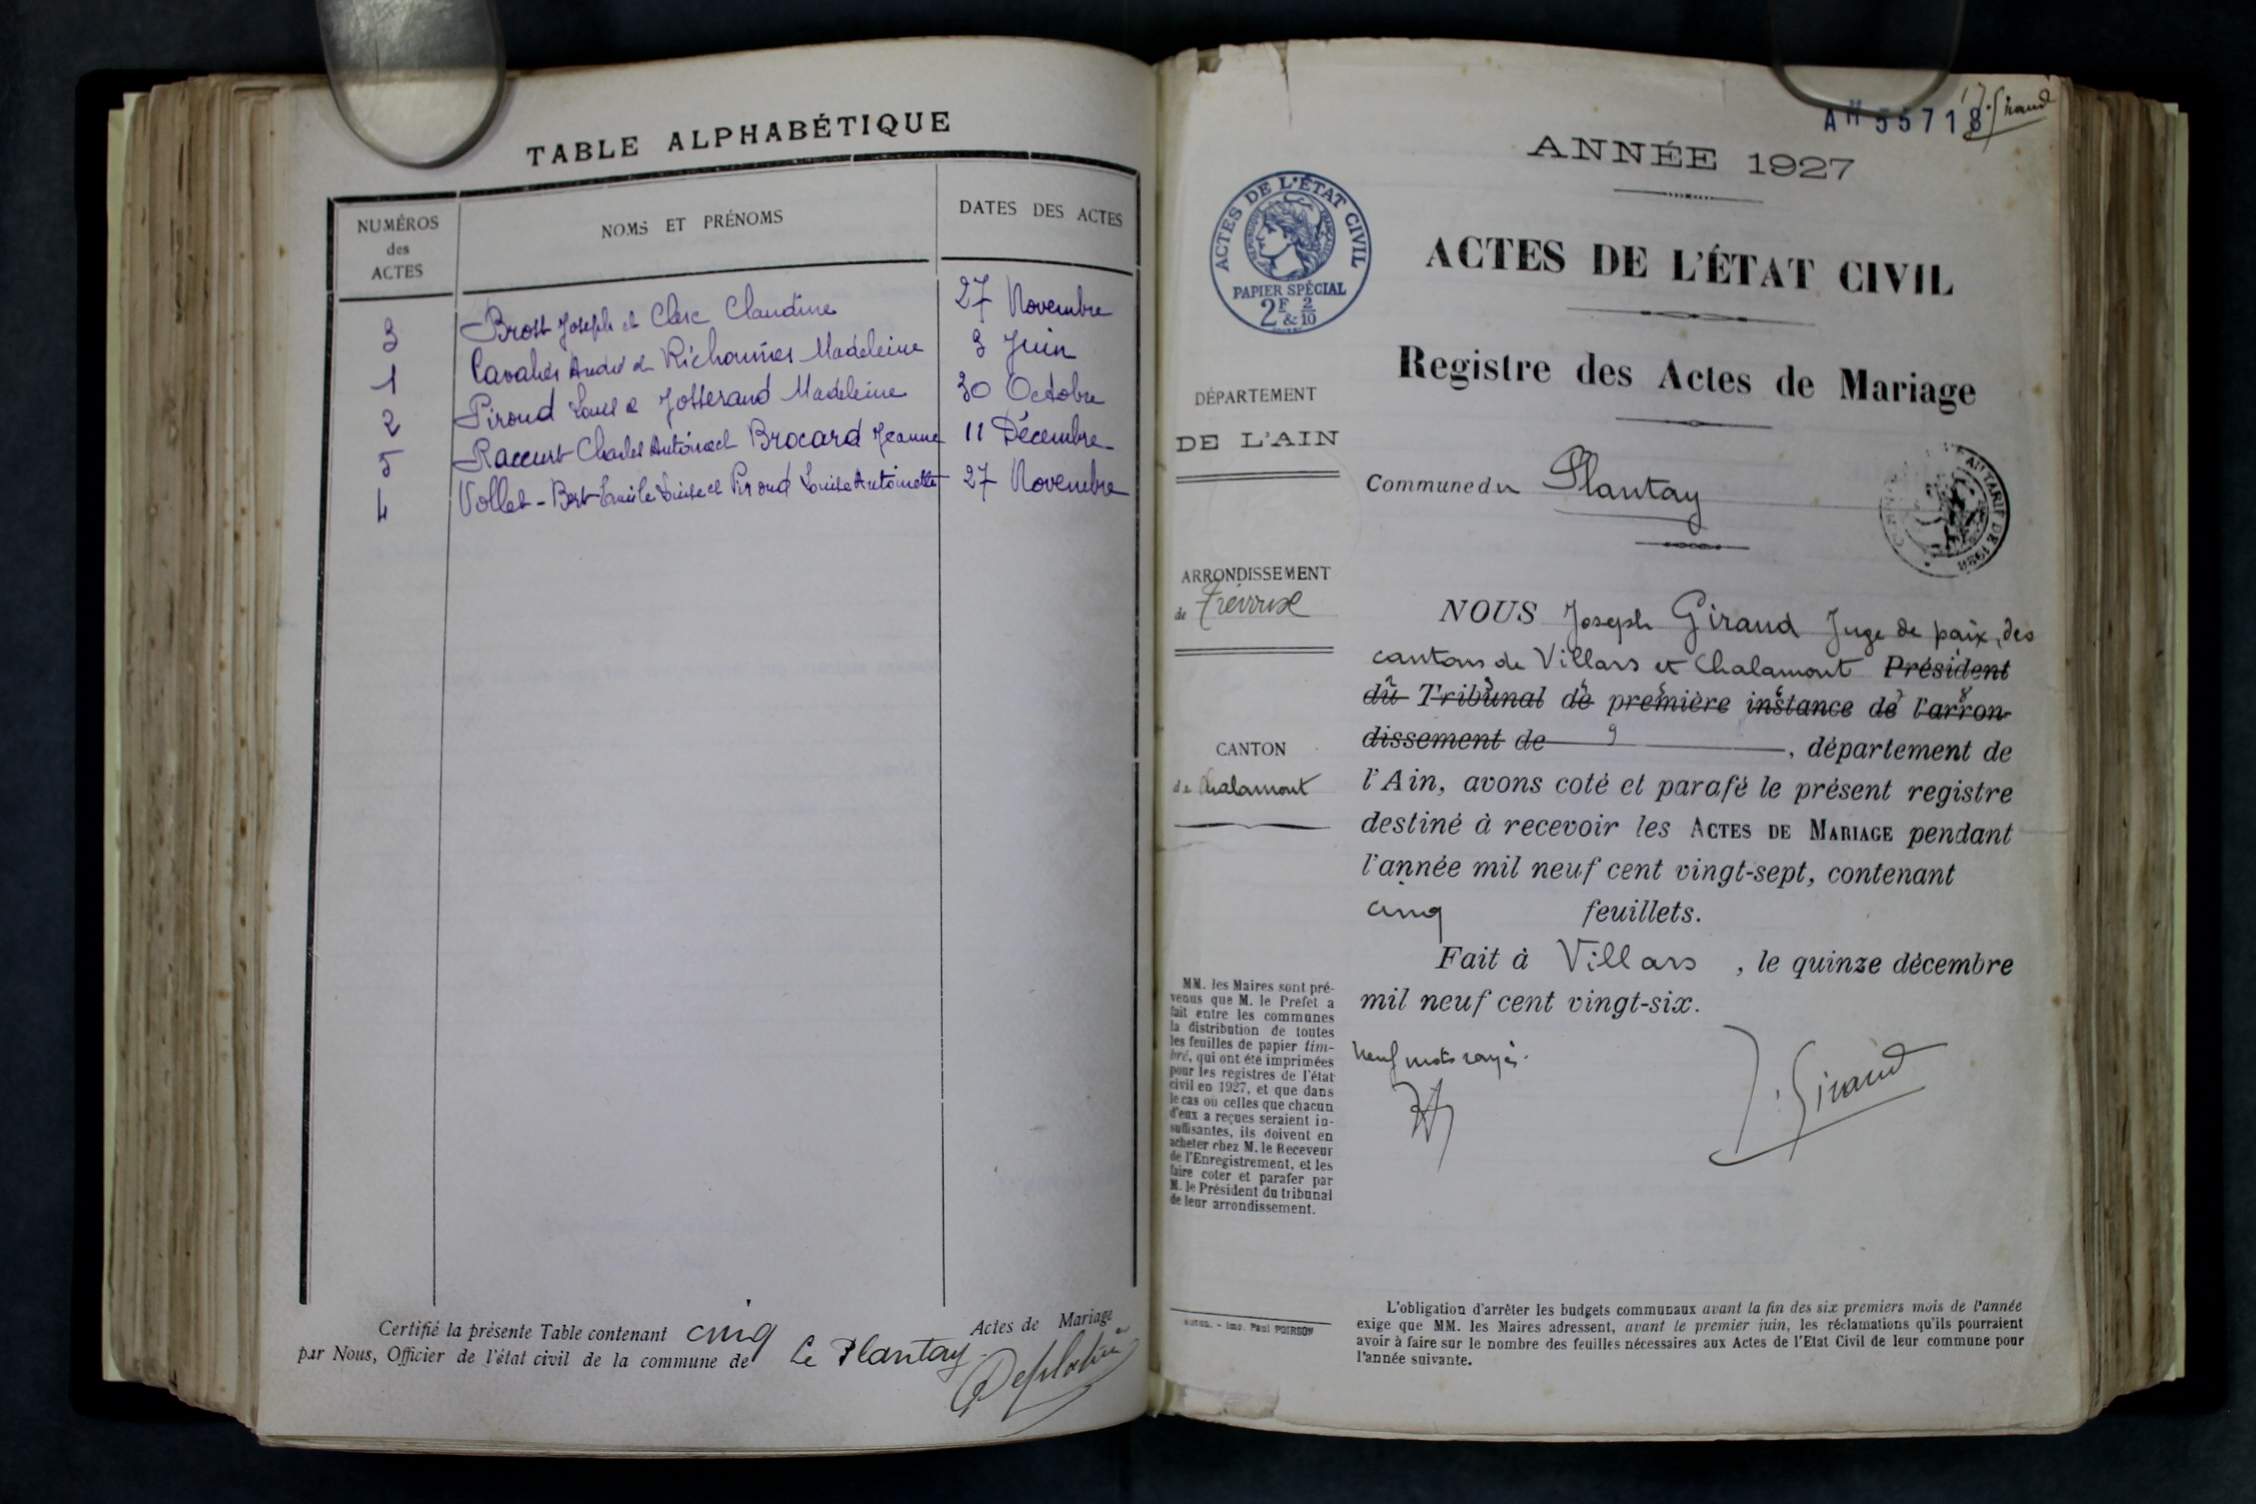 TABLE ALPHABÉTIQUE
NUMÉROS
des
ACTES
NOMS ET PRÉNOMS
DATES DES ACTES
3 Brost Joseph et Clerc Claudine 27 Novembre
1 Cavalier André et Richonnier Madeleine 3 Juin
2 Piroud Louis et Josserand Madeleine 30 Octobre
5 Raccurt Charles Antoine et Brocard Jeanne 11 Décembre
4 Vollet-Bert Emile et Piroud Louise Antoinette 27 Novembre
Certifié la présente Table contenant cinq Actes de Mariage
par Nous, Officier de l'état civil de la commune de Le Plantay
AH 55718
J. Giraud
ANNÉE 1927
ACTES DE L'ÉTAT CIVIL
RÉPUBLIQUE FRANÇAISE
PAPIER SPÉCIAL
2F & 2/10
ACTES DE L'ÉTAT CIVIL
Registre des Actes de Mariage
DÉPARTEMENT
DE L'AIN
Commune du Plantay
AU TARIF DE
ARRONDISSEMENT
de Trévoux
CANTON
de Chalamont
NOUS Joseph Giraud Juge de paix, des
cantons de Villars et Chalamont Président
du Tribunal de première instance de l'arron-
dissement de 9, département de
l'Ain, avons coté et parafé le présent registre
destiné à recevoir les ACTES DE MARIAGE pendant
l'année mil neuf cent vingt-sept, contenant
cinq feuillets.
Fait à Villars, le quinze décembre
mil neuf cent vingt-six.
neuf mots rayés.
J. Giraud
MM. les Maires sont pré-
venus que M. le Préfet a
fait entre les communes
la distribution de toutes
les feuilles de papier tim-
bré, qui ont été imprimées
pour les registres de l'état
civil en 1927, et que dans
le cas où celles que chacun
d'eux a reçues seraient in-
suffisantes, ils doivent en
acheter chez M. le Receveur
de l'Enregistrement, et les
faire coter et parafer par
M. le Président du tribunal
de leur arrondissement.
Imp. Paul POIRSON
L'obligation d'arrêter les budgets communaux avant la fin des six premiers mois de l'année
exige que MM. les Maires adressent, avant le premier juin, les réclamations qu'ils pourraient
avoir à faire sur le nombre des feuilles nécessaires aux Actes de l'Etat Civil de leur commune pour
l'année suivante.